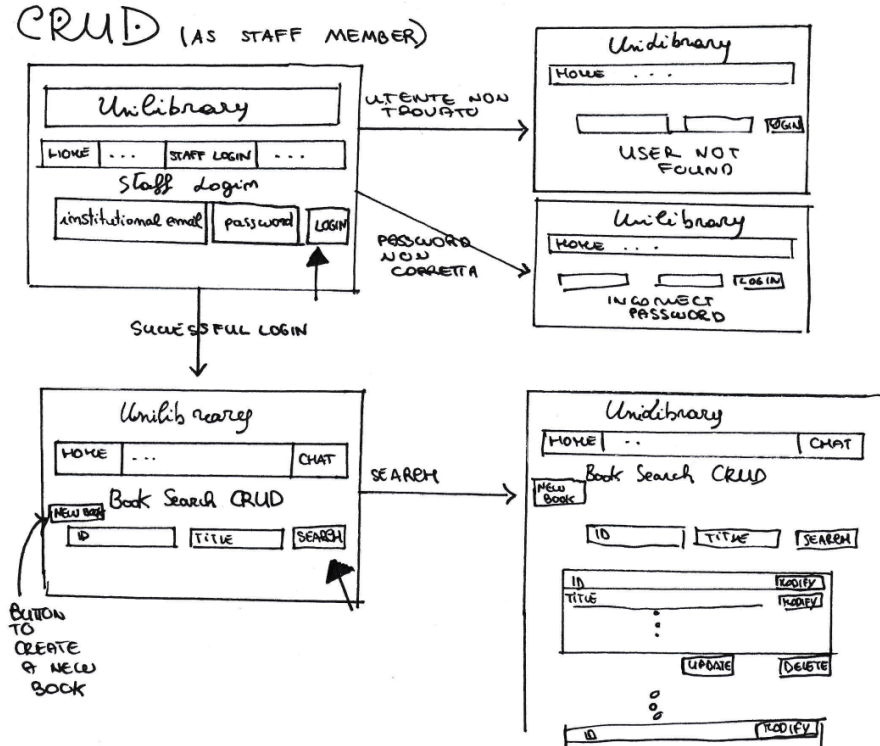 CRUD (AS STAFF MEMBER)
Unilibrary
HOME ... STAFF LOGIN ...
Staff Login
institutional email password LOGIN
UTENTE NON
TROVATO
Unilibrary
HOME ...
LOGIN
USER NOT
FOUND
PASSWORD
NON
CORRETTA
Unilibrary
HOME ...
LOGIN
INCORRECT
PASSWORD
SUCCESSFUL LOGIN
Unilibrary
HOME ... CHAT
Book Search CRUD
NEW BOOK
ID TITLE SEARCH
BUTTON
TO
CREATE
A NEW
BOOK
SEARCH
Unilibrary
HOME .. CHAT
Book Search CRUD
NEW
BOOK
ID TITLE SEARCH
ID MODIFY
TITLE MODIFY
UPDATE DELETE
ID MODIFY